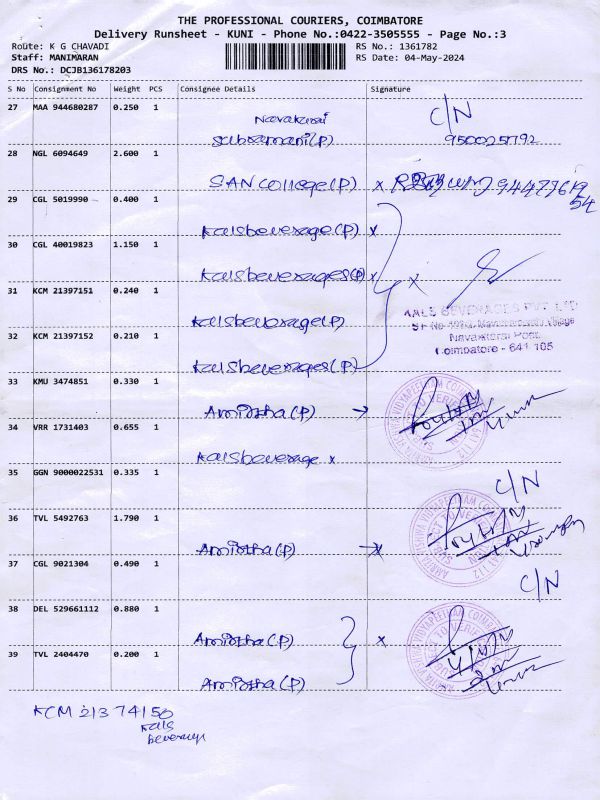 THE PROFESSIONAL COURIERS, COIMBATORE
Delivery Runsheet - KUNI - Phone No.:0422-3505555 - Page No.:3
Route: K G CHAVADI
Staff: MANIMARAN
DRS No.: DCJB136178203
RS No.: 1361782
RS Date: 04-May-2024
S No Consignment No Weight PCS Consignee Details Signature
27 MAA 944680287 0.250 1
Navakarai C/N
Subramani(P) 9500025792
28 NGL 6094649 2.600 1
SAN College(P) x 9442761954
29 CGL 5019990 0.400 1
Kalsbeverage(P) x
30 CGL 40019823 1.150 1
Kalsbeverages(P) x x
31 KCM 21397151 0.240 1
Kalsbeverage(P)
KALS BEVERAGES PVT LTD
Village
Navakkarai Post,
Coimbatore - 641 105
32 KCM 21397152 0.210 1
Kalsbeverages(P)
33 KMU 3474851 0.330 1
Amirtha(P) →
34 VRR 1731403 0.655 1
Kalsbeverage x
35 GGN 9000022531 0.335 1
C/N
36 TVL 5492763 1.790 1
Amirtha(P) x
37 CGL 9021304 0.490 1
C/N
38 DEL 529661112 0.880 1
Amirtha(P) x
39 TVL 2404470 0.200 1
Amirtha(P)
KCM 21374150
Kals
beverage